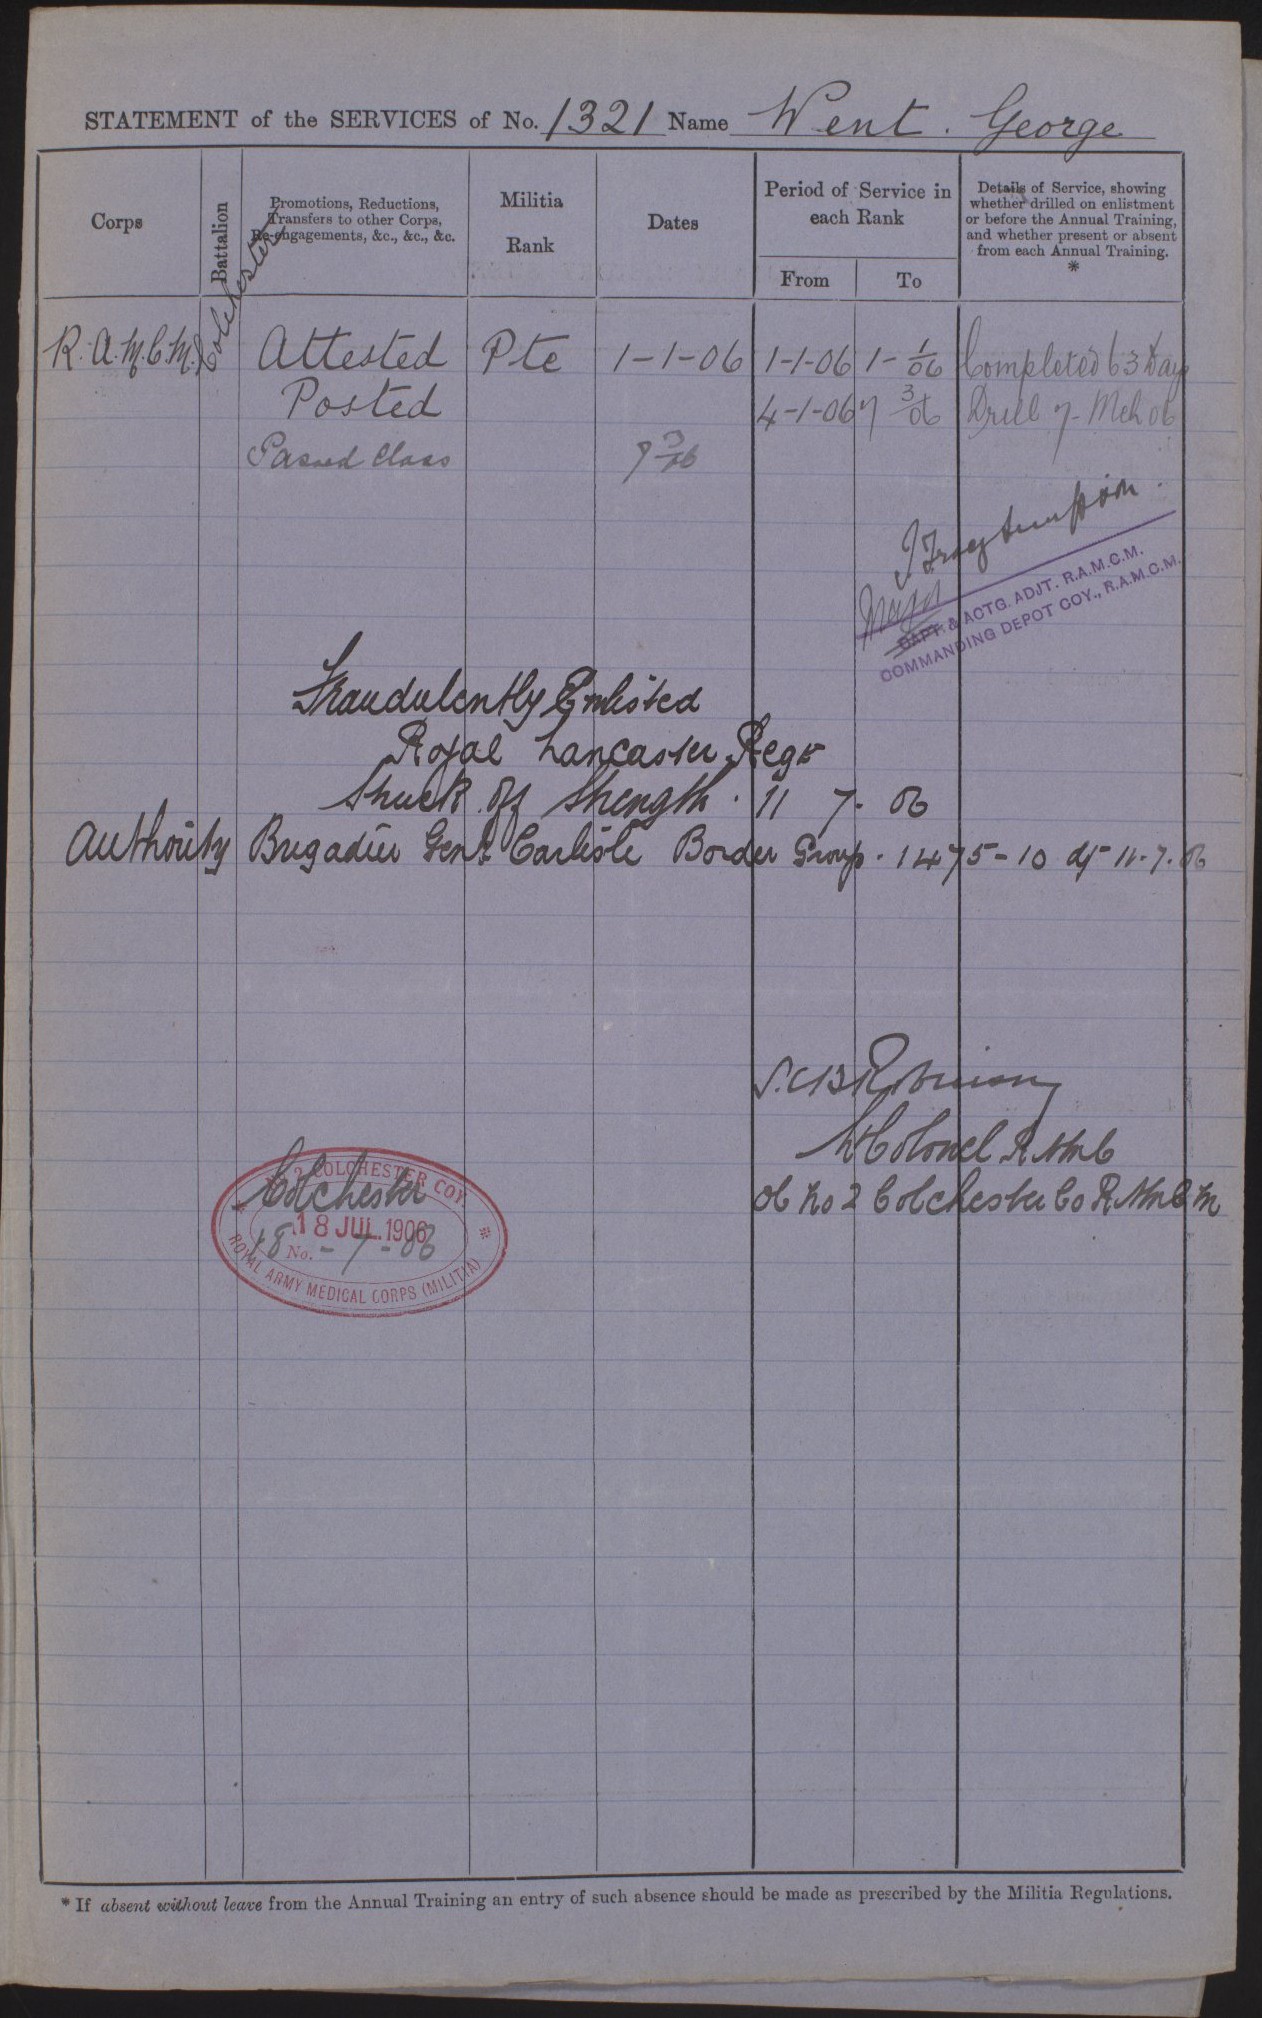 STATEMENT of the SERVICES of No. 1321 Name Went. George
Corps
Battalion
Promotions, Reductions,
Transfers to other Corps,
Re-engagements, &c., &c., &c.
Militia
Rank
Dates
Period of Service in
each Rank
From
To
Details of Service, showing
whether drilled on enlistment
or before the Annual Training,
and whether present or absent
from each Annual Training.
*
R.A.M.C.M. Colchester Attested Pte 1-1-06 1-1-06 1-1/06 Completed 63 Days
Posted 4-1-06 7 3/06 Drill 7-Mch 06
Passed Class 7 3/06
Major
CAPT. & ACTG. ADJT. R.A.M.C.M.
COMMANDING DEPOT COY., R.A.M.C.M.
Fraudulently Enlisted
Royal Lancaster Regt
Struck off Strength. 11 7. 06
Authority Brigadier Genl. Carlisle Border Group. 1475-10 df 11.7.06
S.C.B Robinson
Lt Colonel RAMC
OC No 2 Colchester Co RAMCM
No. 2 COLCHESTER COY.
Colchester
18 JUL. 1906
18-7-06
No.
ROYAL ARMY MEDICAL CORPS (MILITIA)
* If absent without leave from the Annual Training an entry of such absence should be made as prescribed by the Militia Regulations.